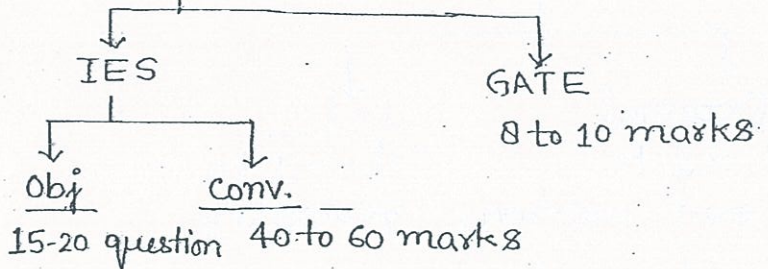 IES
GATE
8 to 10 marks
Obj
Conv.
15-20 question
40 to 60 marks